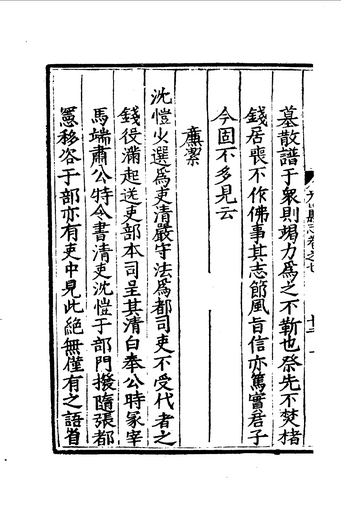 墓散譜于衆則竭力為之不靳也祭先不焚楮
錢居喪不作佛事其志節風旨信亦篤實君子
今固不多見云
廉潔
沈愷火選為吏清嚴守法為都司吏不受代者之
錢役滿起送吏部本司呈其清白奉公時冢宰
馬端肅公特令書清吏沈愷于部門擬隨張都
憲移咨于部亦有吏中見此絕無僅有之語省